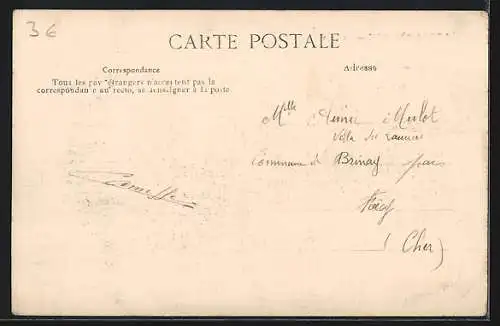 36
CARTE POSTALE
Correspondance
Tous les pays étrangers n'acceptent pas la
correspondance au recto, se renseigner à la poste
Adresse
Mlle Mulot
Villa des
Commune de Brinay par
Foëcy
(Cher)